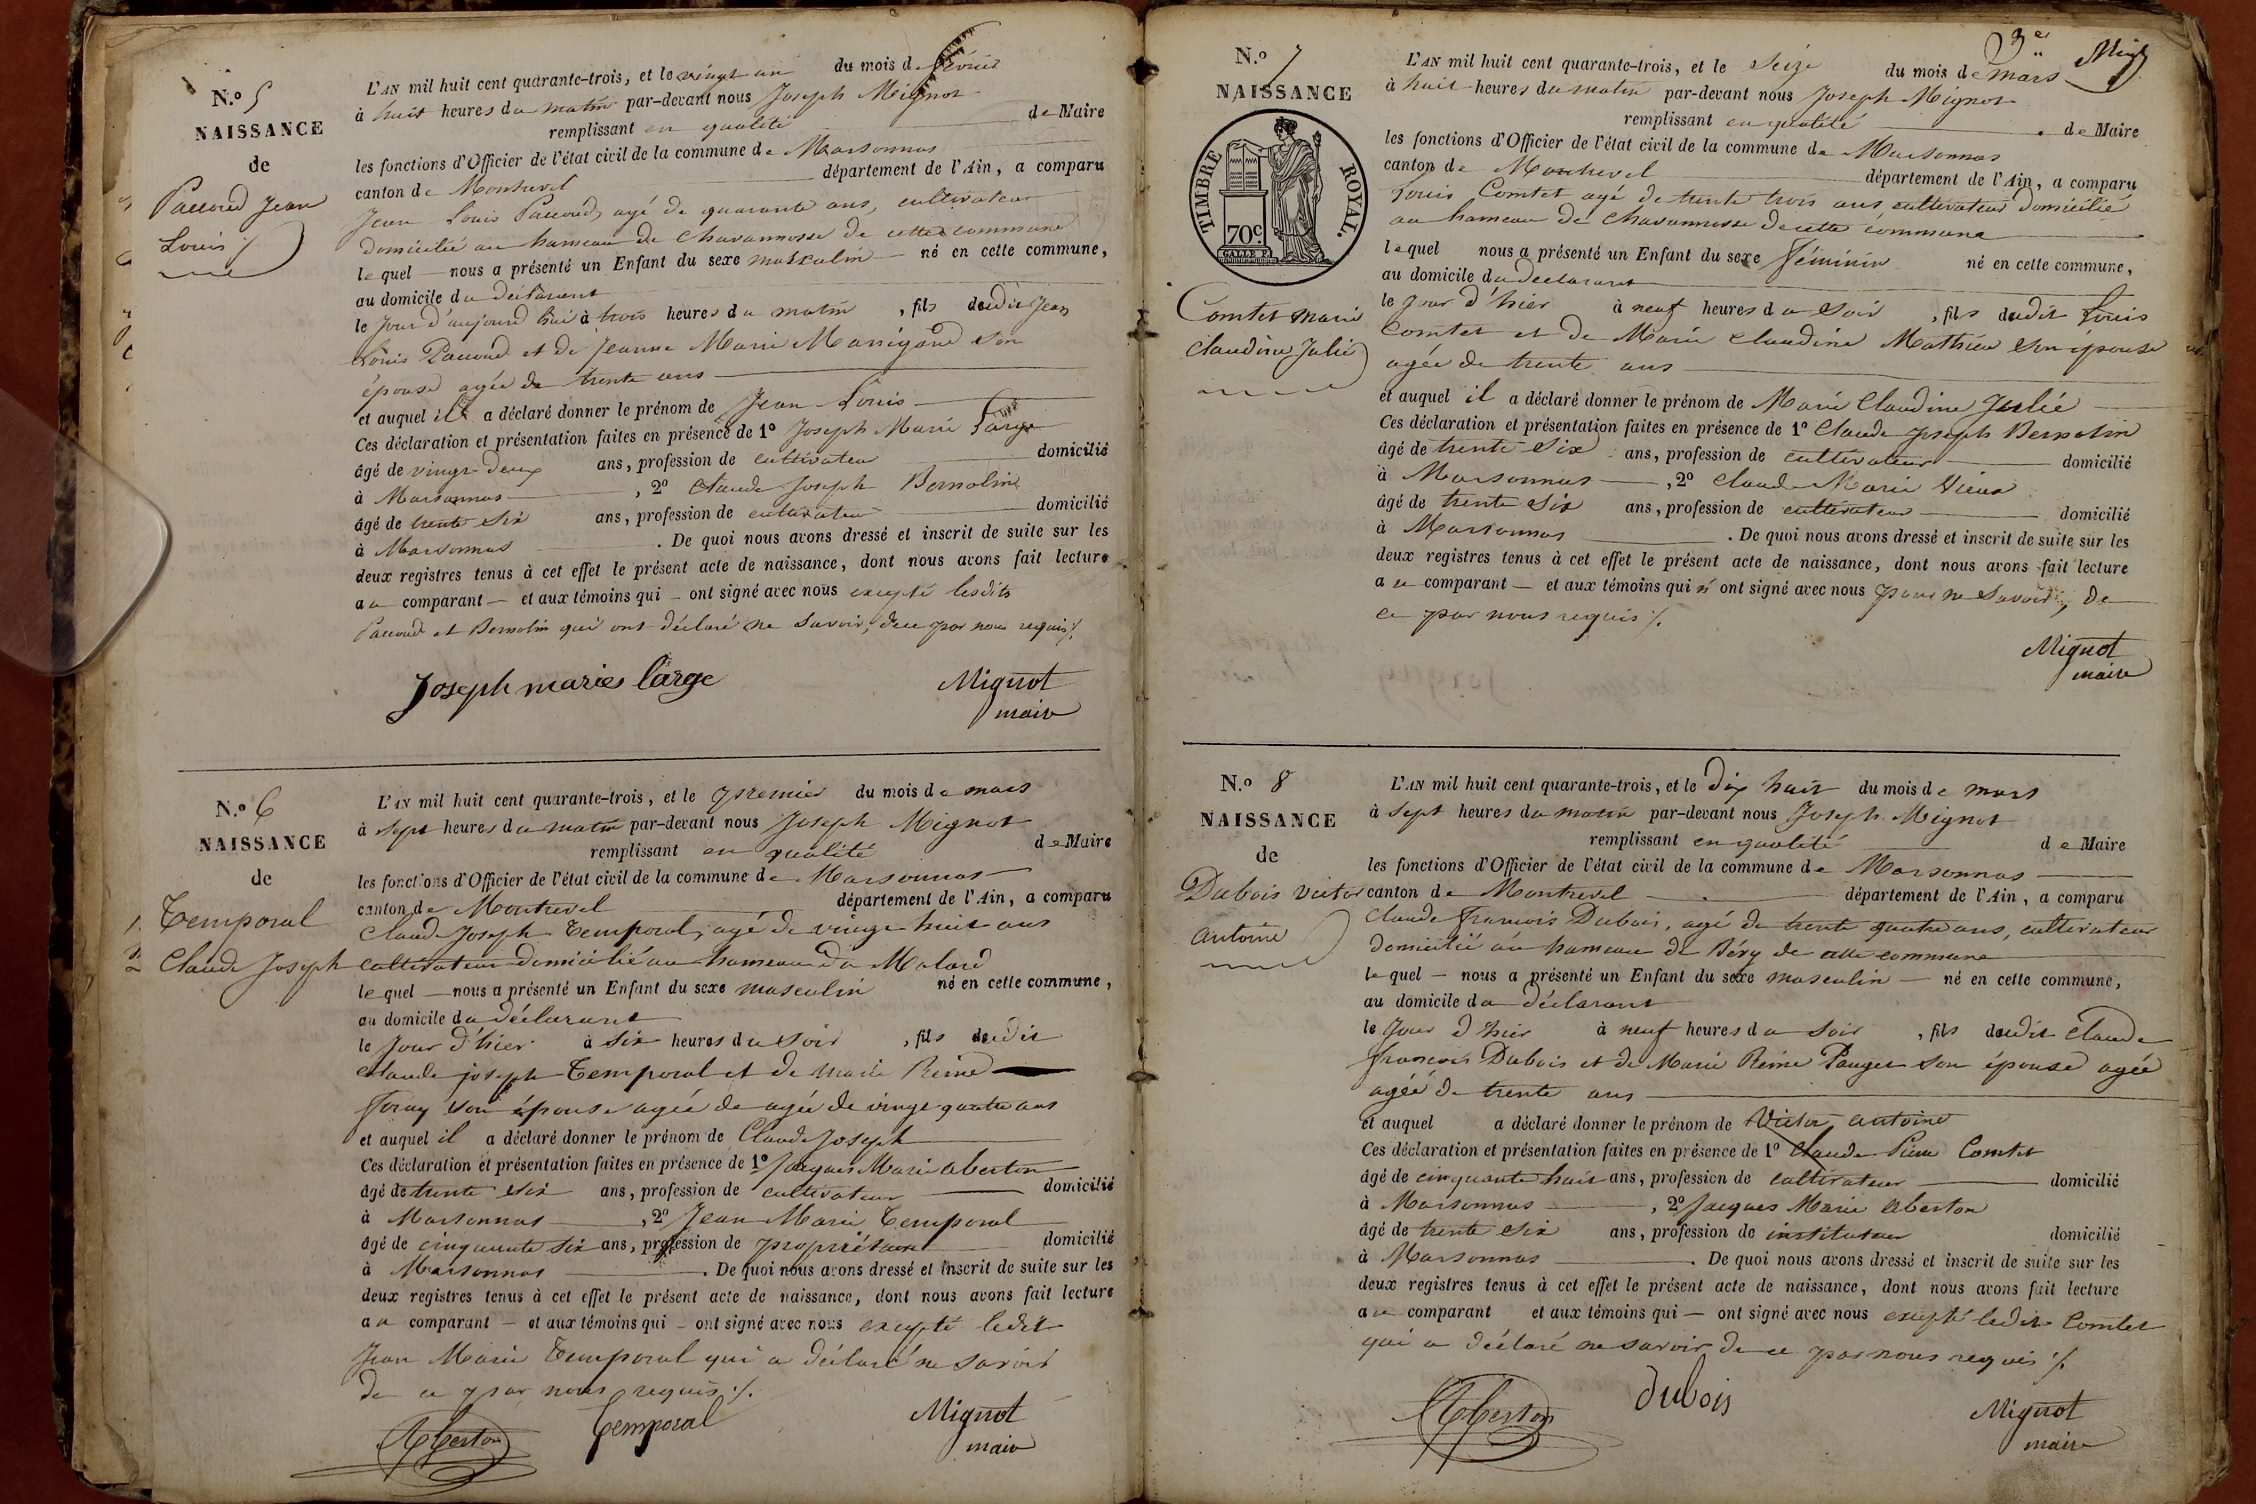 N.o 5
NAISSANCE
de
Paccoud Jean
Louis
L'AN mil huit cent quarante-trois, et le vingt un du mois de février
à huit heures du matin par-devant nous Joseph Mignot
remplissant en qualité de Maire
les fonctions d'Officier de l'état civil de la commune de Marsonnas
canton de Montrevel département de l'Ain, a comparu
Jean Louis Paccoud, agé de quarante ans, cultivateur
domicilié au hameau de Chavannosse de cette commune
lequel nous a présenté un Enfant du sexe masculin né en cette commune,
au domicile du déclarant
le jour d'aujourd'hui à trois heures du matin, fils dudit Jean
Louis Paccoud et de Jeanne Marie Marrigand son
épouse agée de trente ans
et auquel il a déclaré donner le prénom de Jean Louis
Ces déclaration et présentation faites en présence de 1o Joseph Marie Large
âgé de vingt deux ans, profession de cultivateur domicilié
à Marsonnas, 2o Claude Joseph Bernolin
âgé de trente six ans, profession de cultivateur domicilié
à Marsonnas. De quoi nous avons dressé et inscrit de suite sur les
deux registres tenus à cet effet le présent acte de naissance, dont nous avons fait lecture
au comparant et aux témoins qui ont signé avec nous excepté lesdits
Paccoud et Bernolin qui ont déclaré ne savoir, de ce par nous requis ./.
Joseph marie large Mignot
maire
N.o 6
NAISSANCE
de
Temporal
Claude Joseph
L'AN mil huit cent quarante-trois, et le premier du mois de mars
à sept heures du matin par-devant nous Joseph Mignot
remplissant en qualité de Maire
les fonctions d'Officier de l'état civil de la commune de Marsonnas
canton de Montrevel département de l'Ain, a comparu
Claude Joseph Temporal, agé de vingt huit ans
cultivateur domicilié au hameau du Malard
lequel nous a présenté un Enfant du sexe masculin né en cette commune,
au domicile du déclarant
le jour d'hier à six heures du soir, fils dudit
Claude joseph Temporal et de marie Reine
Foray son épouse agée de agée de vingt quatre ans
et auquel il a déclaré donner le prénom de Claude Joseph
Ces déclaration et présentation faites en présence de 1o Jacques Marie Aberton
âgé de trente six ans, profession de cultivateur domicilié
à Marsonnas, 2o Jean Marie Temporal
âgé de cinquante six ans, profession de propriétaire domicilié
à Marsonnas. De quoi nous avons dressé et inscrit de suite sur les
deux registres tenus à cet effet le présent acte de naissance, dont nous avons fait lecture
au comparant et aux témoins qui ont signé avec nous excepté ledit
Jean Marie Temporal qui a déclaré ne savoir
de ce par nous requis ./.
Aberton Temporal Mignot
maire
3e Mig
N.o 7
NAISSANCE
TIMBRE ROYAL.
70c.
GALLE F.
Comtet marie
Claudine Julie
L'AN mil huit cent quarante-trois, et le seize du mois de mars
à huit heures du matin par-devant nous Joseph Mignot
remplissant en qualité de Maire
les fonctions d'Officier de l'état civil de la commune de Marsonnas
canton de Montrevel département de l'Ain, a comparu
Louis Comtet agé de trente trois ans, cultivateur domicilié
au hameau de Chavannosse de cette commune
lequel nous a présenté un Enfant du sexe féminin né en cette commune,
au domicile du déclarant
le jour d'hier à neuf heures du soir, fils dudit Louis
Comtet et de Marie Claudine Mathieu son épouse
agée de trente ans
et auquel il a déclaré donner le prénom de Marie Claudine Julie
Ces déclaration et présentation faites en présence de 1o Claude Joseph Bernolin
âgé de trente six ans, profession de cultivateur domicilié
à Marsonnas, 2o Claude Marie Vieux
âgé de trente six ans, profession de cultivateur domicilié
à Marsonnas. De quoi nous avons dressé et inscrit de suite sur les
deux registres tenus à cet effet le présent acte de naissance, dont nous avons fait lecture
au comparant et aux témoins qui n'ont signé avec nous pour ne savoir, de
ce par nous requis ./.
Mignot
maire
N.o 8
NAISSANCE
de
Dubois Victor
antoine
L'AN mil huit cent quarante-trois, et le dix huit du mois de mars
à sept heures du matin par-devant nous Joseph Mignot
remplissant en qualité de Maire
les fonctions d'Officier de l'état civil de la commune de Marsonnas
canton de Montrevel département de l'Ain, a comparu
Claude françois Dubois, agé de trente quatre ans, cultivateur
domicilié au hameau de Béry de cette commune
lequel nous a présenté un Enfant du sexe masculin né en cette commune,
au domicile du déclarant
le jour d'hier à neuf heures du soir, fils dudit Claude
françois Dubois et de Marie Reine Pauget son épouse agée
agée de trente ans
et auquel a déclaré donner le prénom de Victor antoine
Ces déclaration et présentation faites en présence de 1o Claude Pierre Comtet
âgé de cinquante huit ans, profession de cultivateur domicilié
à Marsonnas, 2o Jacques Marie Aberton
âgé de trente six ans, profession de instituteur domicilié
à Marsonnas. De quoi nous avons dressé et inscrit de suite sur les
deux registres tenus à cet effet le présent acte de naissance, dont nous avons fait lecture
au comparant et aux témoins qui ont signé avec nous excepté ledit Comtet
qui a déclaré ne savoir de ce par nous requis ./.
Aberton dubois Mignot
maire